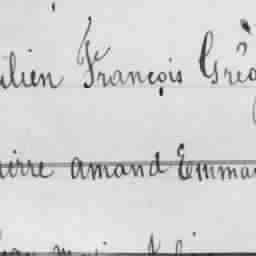 ulien François Gré
ierre amand Emma